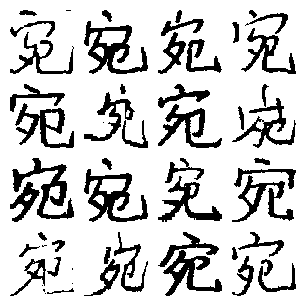 宛宛宛宛
宛宛宛宛
宛宛宛宛
宛宛宛宛